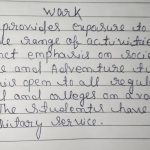 Work
provides exposure to
range of activities
emphasis on soci
and Adventure
is open to all regul
and colleges on a vo
The students have
military service.